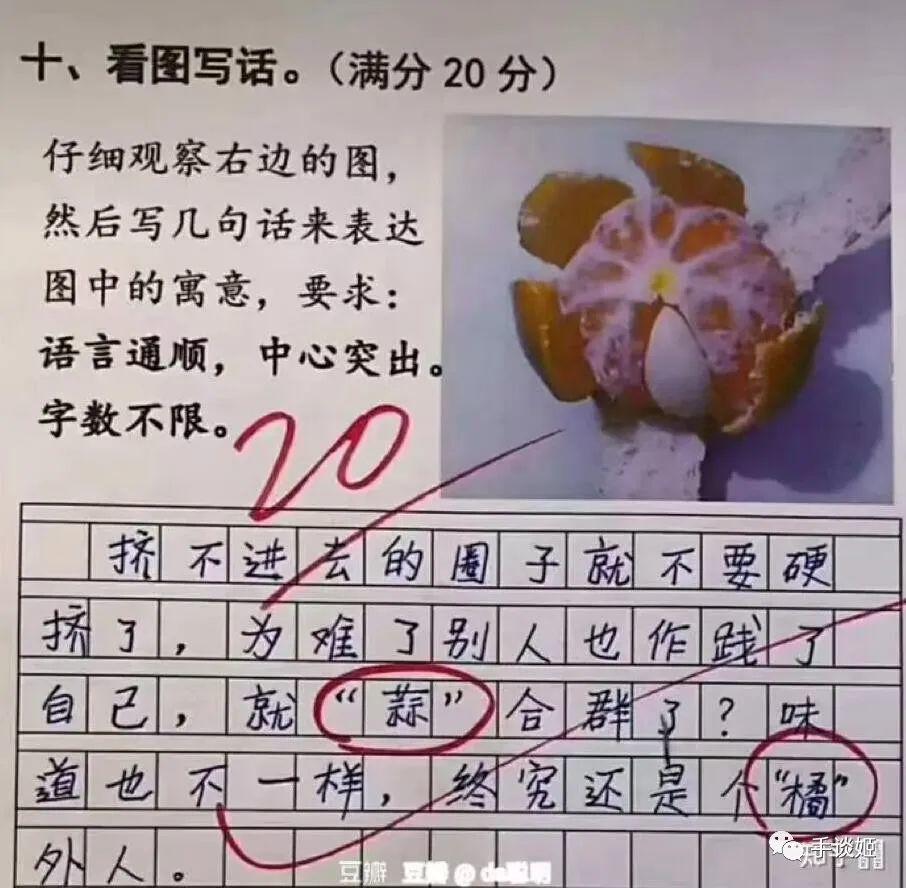 十、看图写话。（满分20分）
仔细观察右边的图，
然后写几句话来表达
图中的寓意，要求：
语言通顺，中心突出。
字数不限。
20
挤不进去的圈子就不要硬
挤了，为难了别人也作践了
自己，就“蒜”合群了？味
道也不一样，终究还是个“橘”
外人。
手谈姬
豆瓣 豆瓣@da聪明